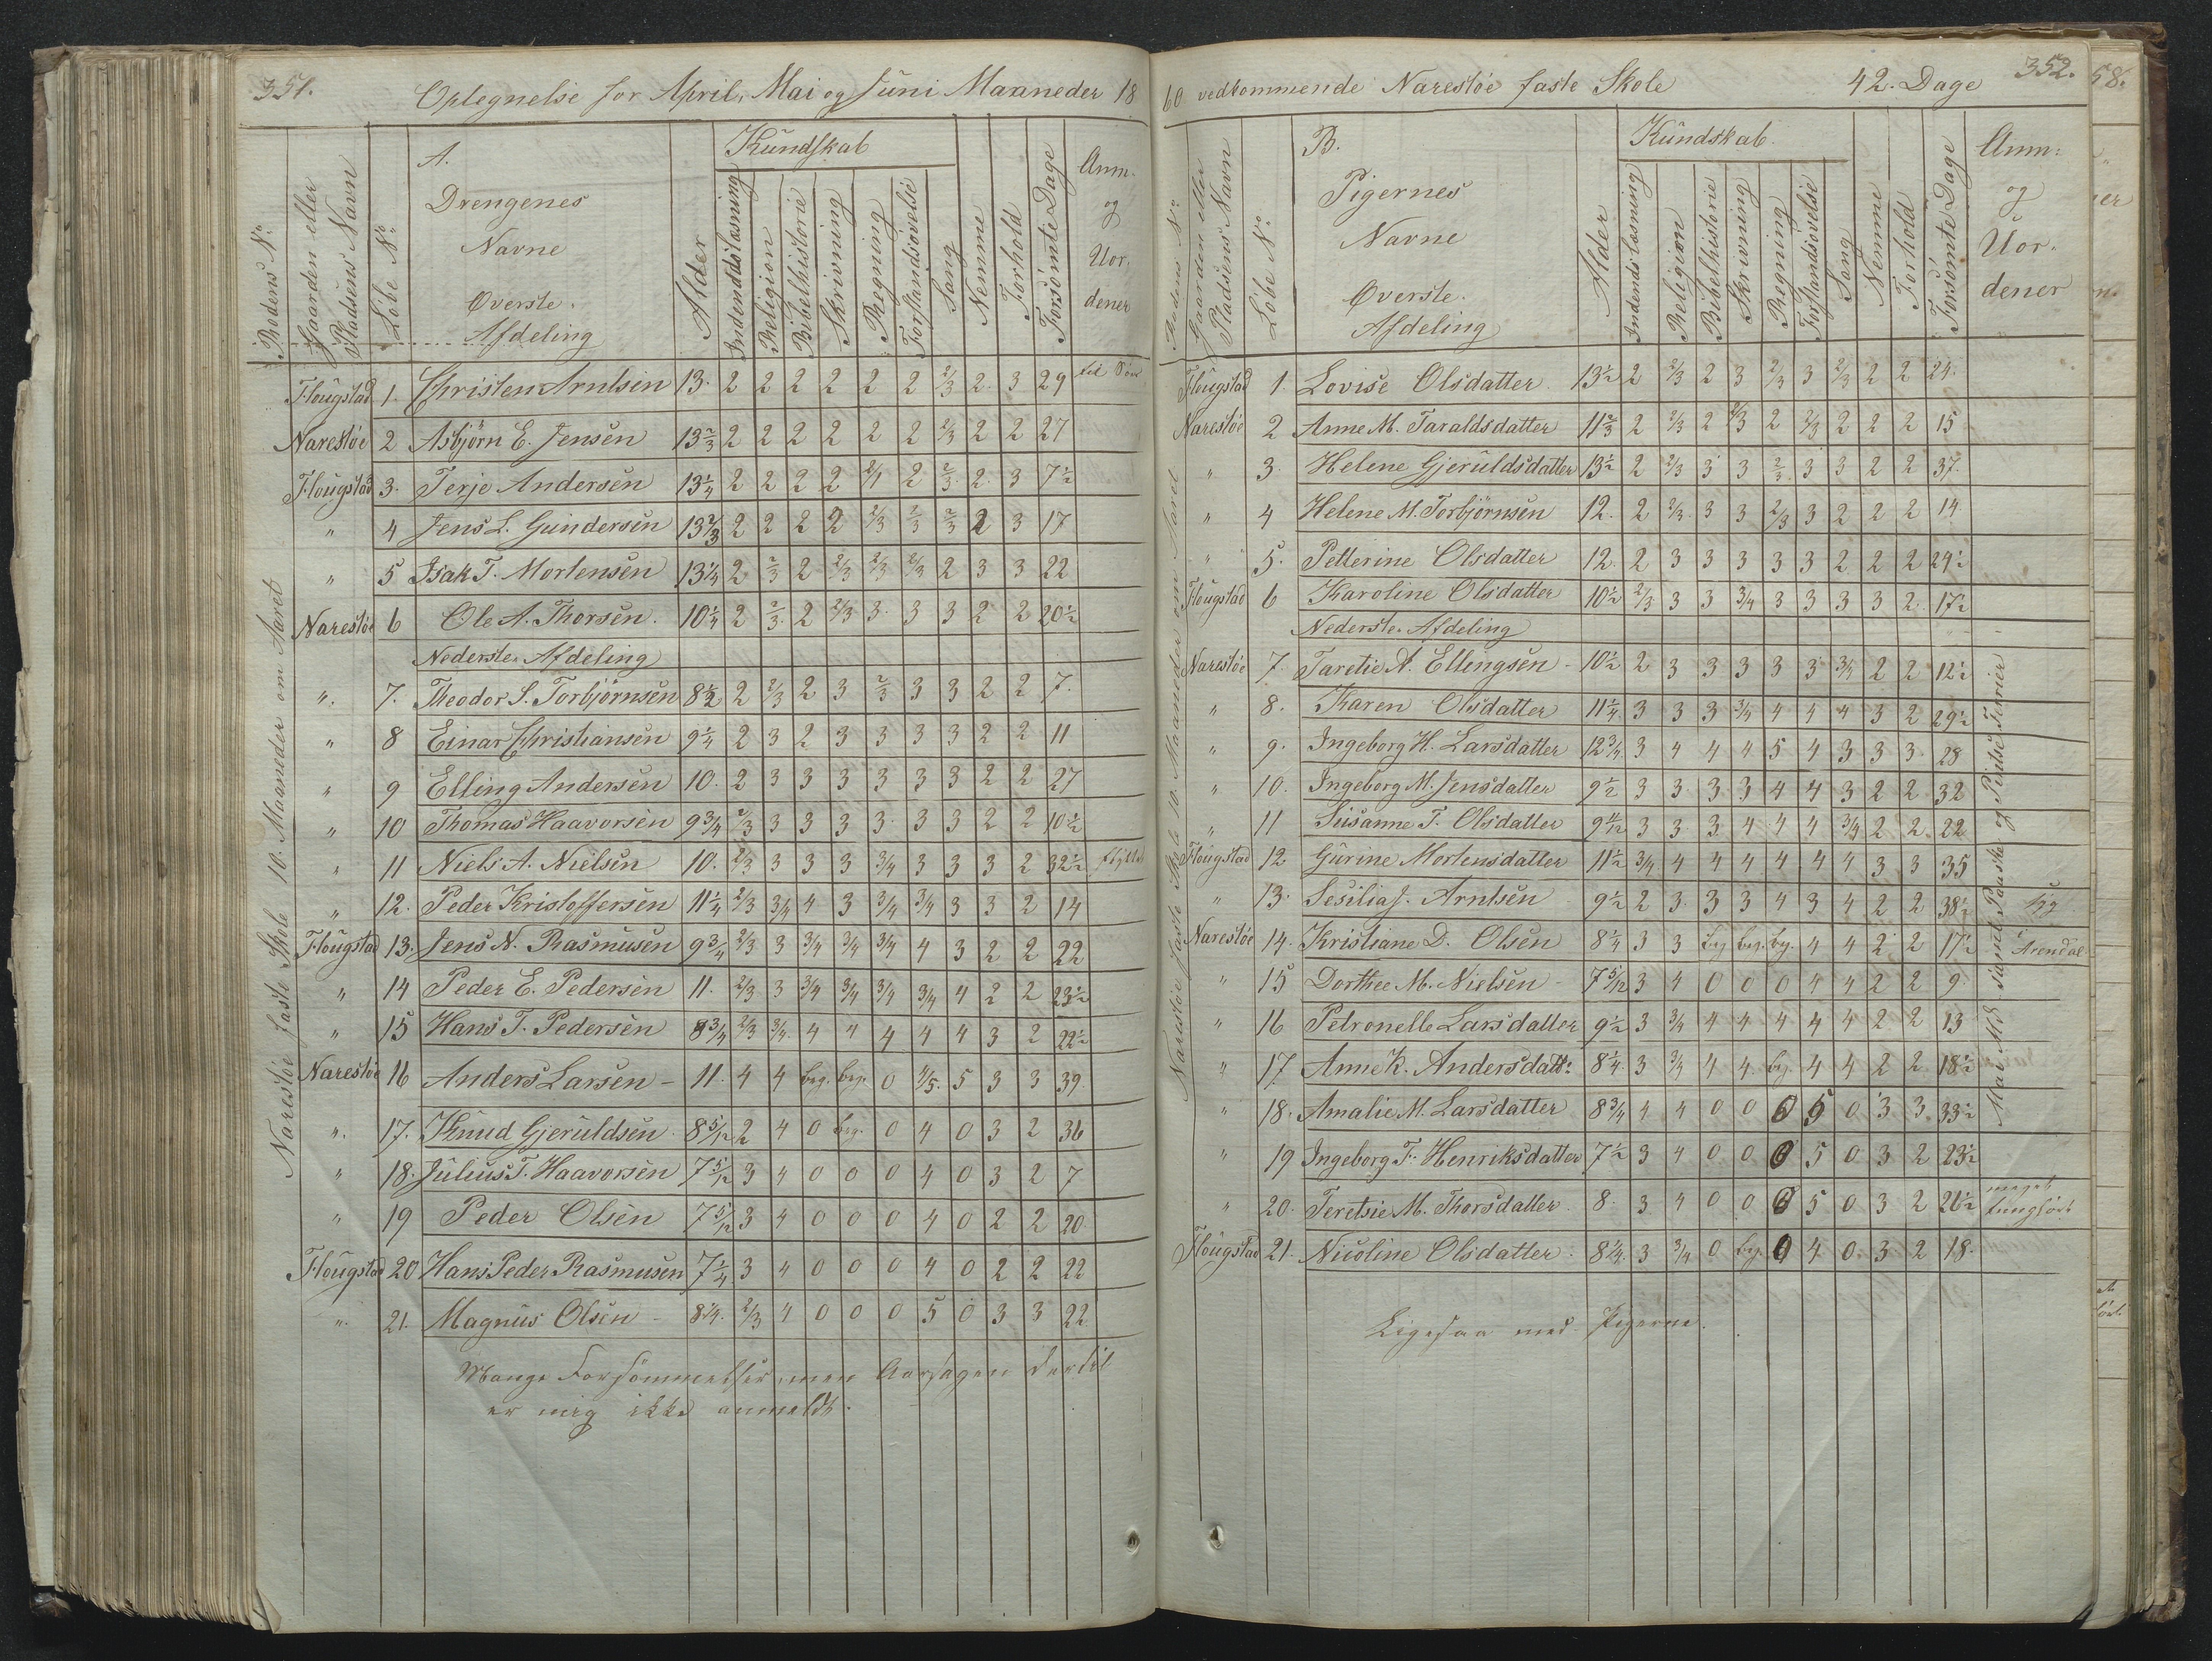 351.
Optegnelse for April, Mai og Juni Maaneder 18
Rodens No.
Gaarden eller Pladsens Navn
Løbe No.
A. Drengenes Navne Øverste Afdeling
Alder
Kundskab
Indenadslæsning
Religion
Bibelhistorie
Skrivning
Regning
Forstandsøvelse
Sang
Nemme
Forhold
Forsømte Dage
Anm. og Uordener
Narestøe faste Skole 10. Maaneder om Aaret
Flougstad 1. Christen Arntsen 13. 2 2 2 2 2 2 2/3 2. 3 29
Narestøe 2 Asbjørn E. Jensen 13 2/3 2 2 2 2 2 2 2/3 2 2 27
Flougstad 3. Terje Andersen 13 1/4 2 2 2 2 2/1 2 2/3. 2. 3 7 1/2
" 4 Jens L. Gundersen 13 2/3 2 2 2 2 2/3 2/3 2/3 2 3 17
" 5 Isak T. Mortensen 13 1/4 2 2/3 2 2/3 2/3 2/3 2 3 3 22
Narestøe 6 Ole A. Thorsen. 10 1/4 2 2/3. 2 2/3 3. 3 3 2 2 20 1/2
Nederste Afdeling
". 7. Theodor S. Torbjørnsen 8 1/2 2 2/3 2 3 2/3 3 3 2 2 7.
" 8 Einar Christiansen 9 1/4 2 3 2 3 3 3 3 2 2 11
" 9 Elling Andersen 10. 2 3 3 3 3 3 3 2 2 27
" 10 Thomas Haavorsen 9 3/4 2/3 3 3 3 3. 3 3 2 2 10 1/2
" 11 Niels A. Nielsen 10. 2/3 3 3 3 3/4 3 3 3 2 32 1/2 flyttet
" 12. Peder Kristoffersen 11 1/4 2/3 3/4 4 3 3/4 3/4 3 3 2 14
Flougstad 13. Jens N. Rasmusen 9 3/4 2/3 3 3/4 3/4 3/4 4 3 2 2 22
" 14 Peder E. Pedersen 11. 2/3 3 3/4 3/4 3/4 3/4 4 2 2 23 1/2
" 15 Hans T. Pedersen 8 3/4 2/3 3/4. 4 4 4 4 4 3 2 22 1/2
Narestøe 16 Anders Larsen - 11. 4 4 beg. beg. 0 4/5. 5 3 3 39.
". 17. Knud Gjeruldsen 8 5/12 2 4 0 beg. 0 4 0 3 2 36
" 18. Julius T. Haavorsen 7 5/12 3 4 0 0 0 4 0 3 2 7
" 19 Peder Olsen 7 5/12 3 4 0 0 0 4 0 2 2 20
Flougstad 20 Hans Peder Rasmusen 7 1/4 3 4 0 0 0 4 0 2 2 22
". 21. Magnus Olsen - 8 1/4. 2/3 4 0 0 0 5 0 3 3 22.
Mange Forsømmelser, men Aarsagen dertil
er mig ikke anmeldt.
60 vedkommende Narestøe faste Skole 42. Dage
352.
Rodens No.
Gaarden eller Pladsens Navn
Løbe No.
B. Pigernes Navne Øverste. Afdeling
Alder
Kundskab.
Indenadslæsning
Religion
Bibelhistorie
Skrivning
Regning
Forstandsøvelse
Sang
Nemme
Forhold
Forsømte Dage
Anm: og Uordener
Narestøe faste Skole 10. Maaneder om Aaret
Flougstad 1. Lovise Olsdatter 13 1/2 2 2/3 2 3 2/3 3 2/3 2 2 24.
Narestøe 2 Anne M. Taraldsdatter 11 2/3 2 2/3 2 2/3 2 2/3 2 2 2 15
" 3. Helene Gjeruldsdatter 13 1/2 2 2/3 3 3 2/3. 3 3 2 2 37.
" 4 Helene M. Torbjørnsen 12. 2 2/3. 3 3 2/3 3 2 2 2 14
" 5. Petterine Olsdatter 12. 2 3 3 3 3 3 2 2 2 24 1/2
Flougstad 6 Karoline Olsdatter 10 1/2 2/3 3 3 3/4 3 3 3 3 2. 17 1/2
Nederste Afdeling
Narestøe 7. Taretie A. Ellingsen - 10 1/2 2 3 3 3 3 3 3/4 2 2 12 1/2
" 8. Karen Olsdatter 11 1/4 3 3 3 3/4 4 4 4 3 2 29 1/2
" 9. Ingeborg H. Larsdatter 12 3/4 3 4 4 4 5 4 3 3 3. 28
" 10. Ingeborg M. Jensdatter 9 1/2 3 3. 3 3 4 4 3 2 2 32
" 11 Susanne T. Olsdatter 9 11/12 3 3. 3 4 4 4 3/4 2 2. 22
Flougstad 12 Gurine Mortensdatter 11 1/2 3/4 4 4 4 4 4 4 3 3 35
" 13. Sesilia J. Arntsen 9 1/2 2 3. 3 3 4 3 4 2 2 38 1/2 syg
Narestøe 14. Kristiane D. Olsen 8 1/4 3 3 beg beg. beg. 4 4 2 2 17 1/2 i Arendal
" 15 Dorthee M. Nielsen - 7 5/12 3 4 0 0 0 4 4 2 2 9.
" 16 Petronelle Larsdatter 9 1/2 3 3/4 4 4 4 4 4 2 2 13
" 17. Anne K. Andersdatt: 8 1/4 3 3/4 4 4. beg. 4 4 2 2 18 1/2
" 18. Amalie M. Larsdatter 8 3/4 4 4 0 0 0 5 0 3 3. 33 1/2
" 19 Ingeborg F. Henriksdatter 7 1/2 3 4 0 0 0 5 0 3 2 23 1/2
" 20. Teretsie M. Thorsdatter 8. 3 4 0 0 0 5 0 3 2 26 1/2 meget tunghørt
Flougstad 21. Nicoline Olsdatter. 8 1/4. 3 3/4 0 beg. 0 4 0. 3 2 18.
samt Paaske og Pintse Ferier
Ligesaa med Pigerne.
58.